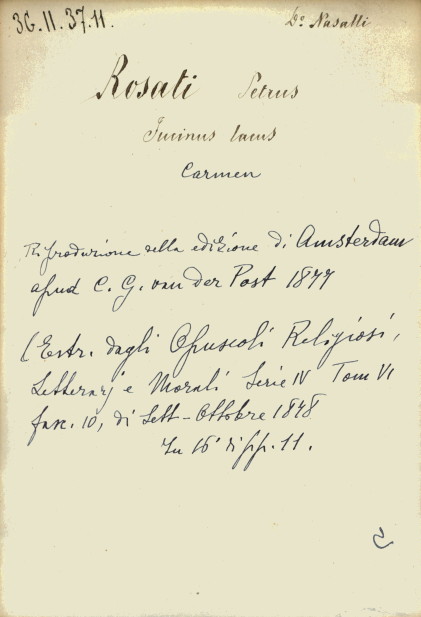 36.II.37.11. Do Nasalli
Rosati Petrus
Fucinus lacus
Carmen
Riproduzione della edizione di Amsterdam
apud C. G. van der Post 1877
(Estr. dagli Opuscoli Religiosi,
Letterarj e Morali Serie IV Tom VI
fasc. 10, di Sett-Ottobre 1878
In 16° di pp. 11.